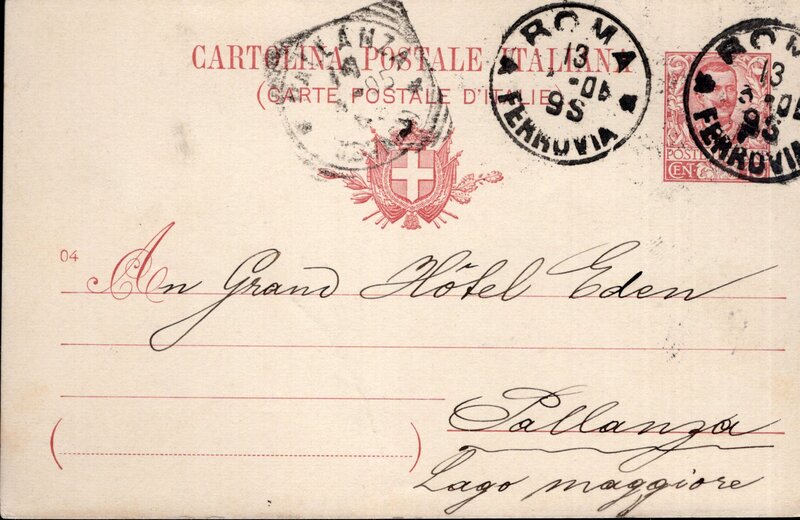 CARTOLINA POSTALE ITALIANA
(CARTE POSTALE D'ITALIE)
PALLANZA
05
ROMA
13
FERROVIA
ROMA
13
FERROVIA
POSTE
CEN
04
An Grand Hôtel Eden
Pallanza
Lago maggiore